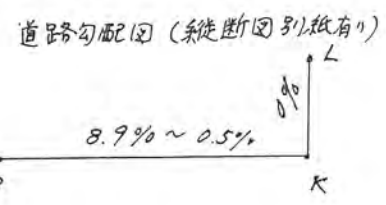 道路勾配図(縦断図別紙有り)
L
0%
8.9% ~ 0.5%
K